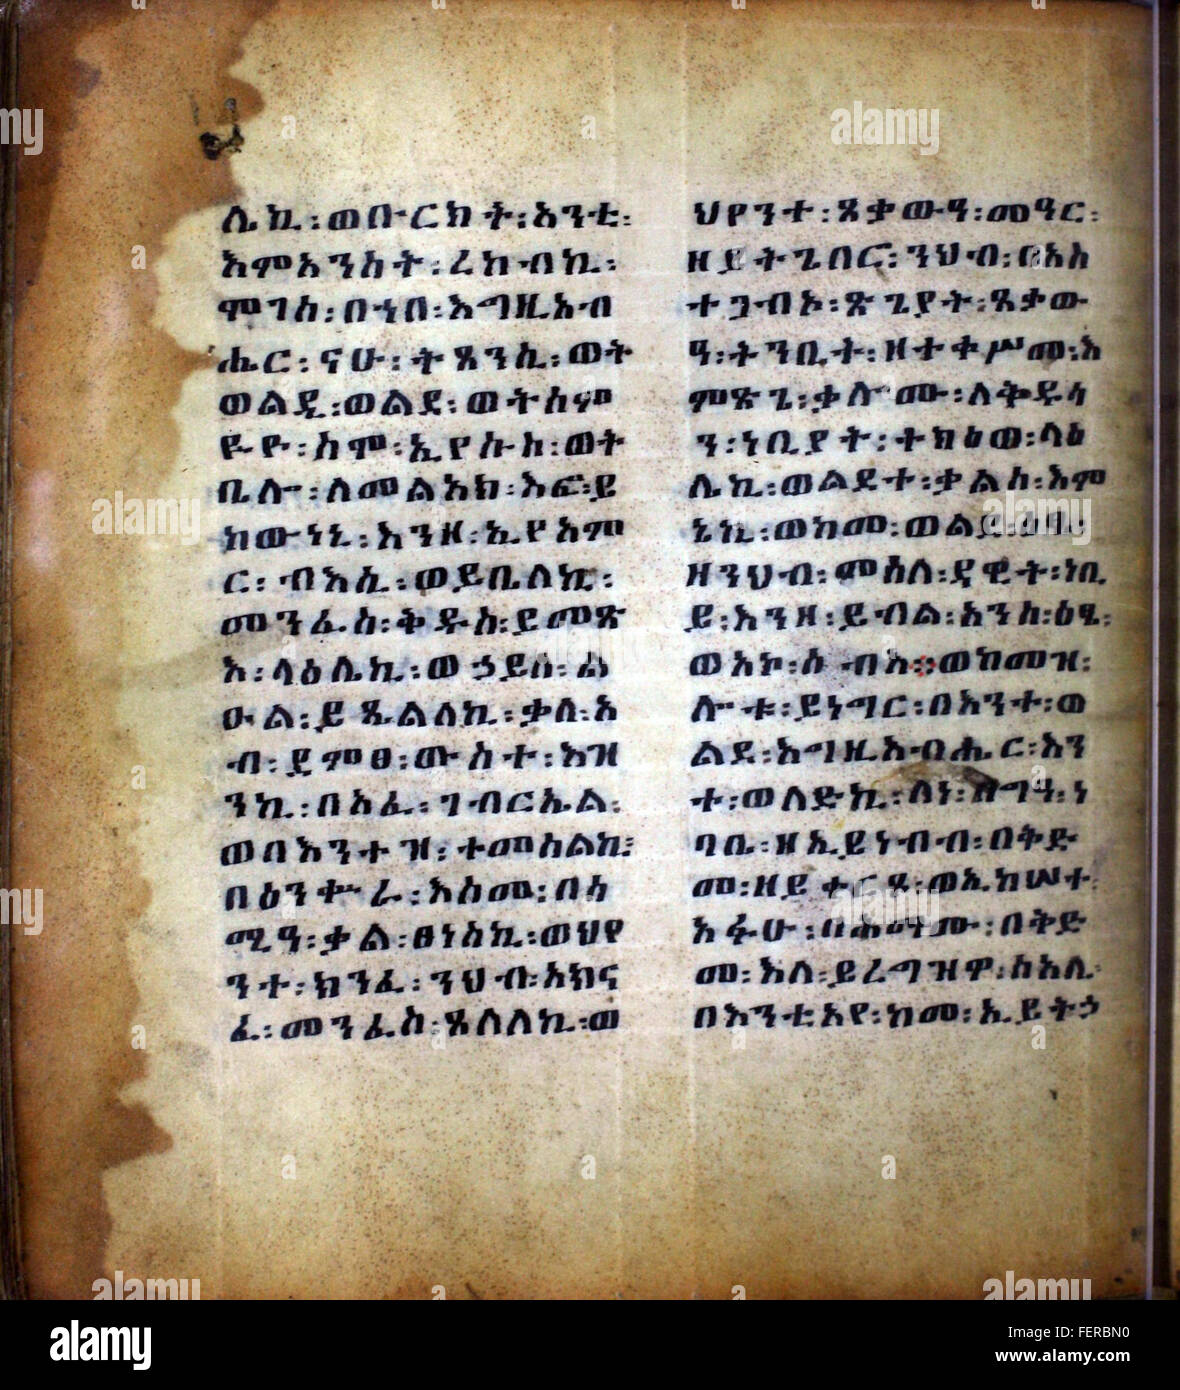 ሌኪ፡ወቡርክት፡አንቲ፡
እምአንስት፡ረከብኪ፡
ሞገሰ፡በኀበ፡እግዚአብ
ሔር፡ናሁ፡ትፀንሲ፡ወት
ወልዲ፡ወልደ፡ወትሰም
ዪዮ፡ስሞ፡ኢየሱስ፡ወት
ቤሎ፡ለመልአክ፡እፎ፡ይ
ከውነኒ፡እንዘ፡ኢየአም
ር፡ብእሲ፡ወይቤለኪ፡
መንፈስ፡ቅዱስ፡ይመጽ
እ፡ላዕሌኪ፡ወኃይለ፡ል
ዑል፡ይጼልለኪ፡ቃለ፡አ
ብ፡ደምፀ፡ውስተ፡እዝ
ንኪ፡በአፈ፡ገብርኤል፡
ወበእንተዝ፡ተመሰልኪ፡
በዕንቍራ፡እስመ፡በሰ
ሚዓ፡ቃል፡ፀነስኪ፡ወህየ
ንተ፡ክንፈ፡ንህብ፡አክና
ፈ፡መንፈስ፡ጸለለኪ፡ወ
ህየንተ፡ጸቃውዓ፡መዓር፡
ዘይትጌበር፡ንህብ፡በአስ
ተጋብኦ፡ጽጌያት፡ጸቃው
ዓ፡ትንቢት፡ዘተቀሥመ፡እ
ምጽጌ፡ቃሎሙ፡ለቅዱሳ
ን፡ነቢያት፡ተክዕወ፡ላዕ
ሌኪ፡ወልደተ፡ቃልሰ፡እም
ኔኪ፡ወከመ፡ወልደ፡ዕፄ፡
ዘንህብ፡መሰለ፡ዳዊት፡ነቢ
ይ፡እንዘ፡ይብል፡አንሰ፡ዕፄ፡
ወአኮ፡ሰብእ፡፡ወከመዝ፡
ሎቱ፡ይነግር፡በእንተ፡ወ
ልደ፡እግዚአብሔር፡እን
ተ፡ወለድኪ፡ለነ፡በግዓ፡ነ
ባቤ፡ዘኢይነብብ፡በቅድ
መ፡ዘይቀርፆ፡ወኢከሠተ፡
አፋሁ፡በሕማሙ፡በቅድ
መ፡እለ፡ይረግዝዋ፡ስእሊ፡
በእንቲአየ፡ከመ፡ኢይትኃ
alamy
a
Image ID: FERBN0
www.alamy.com